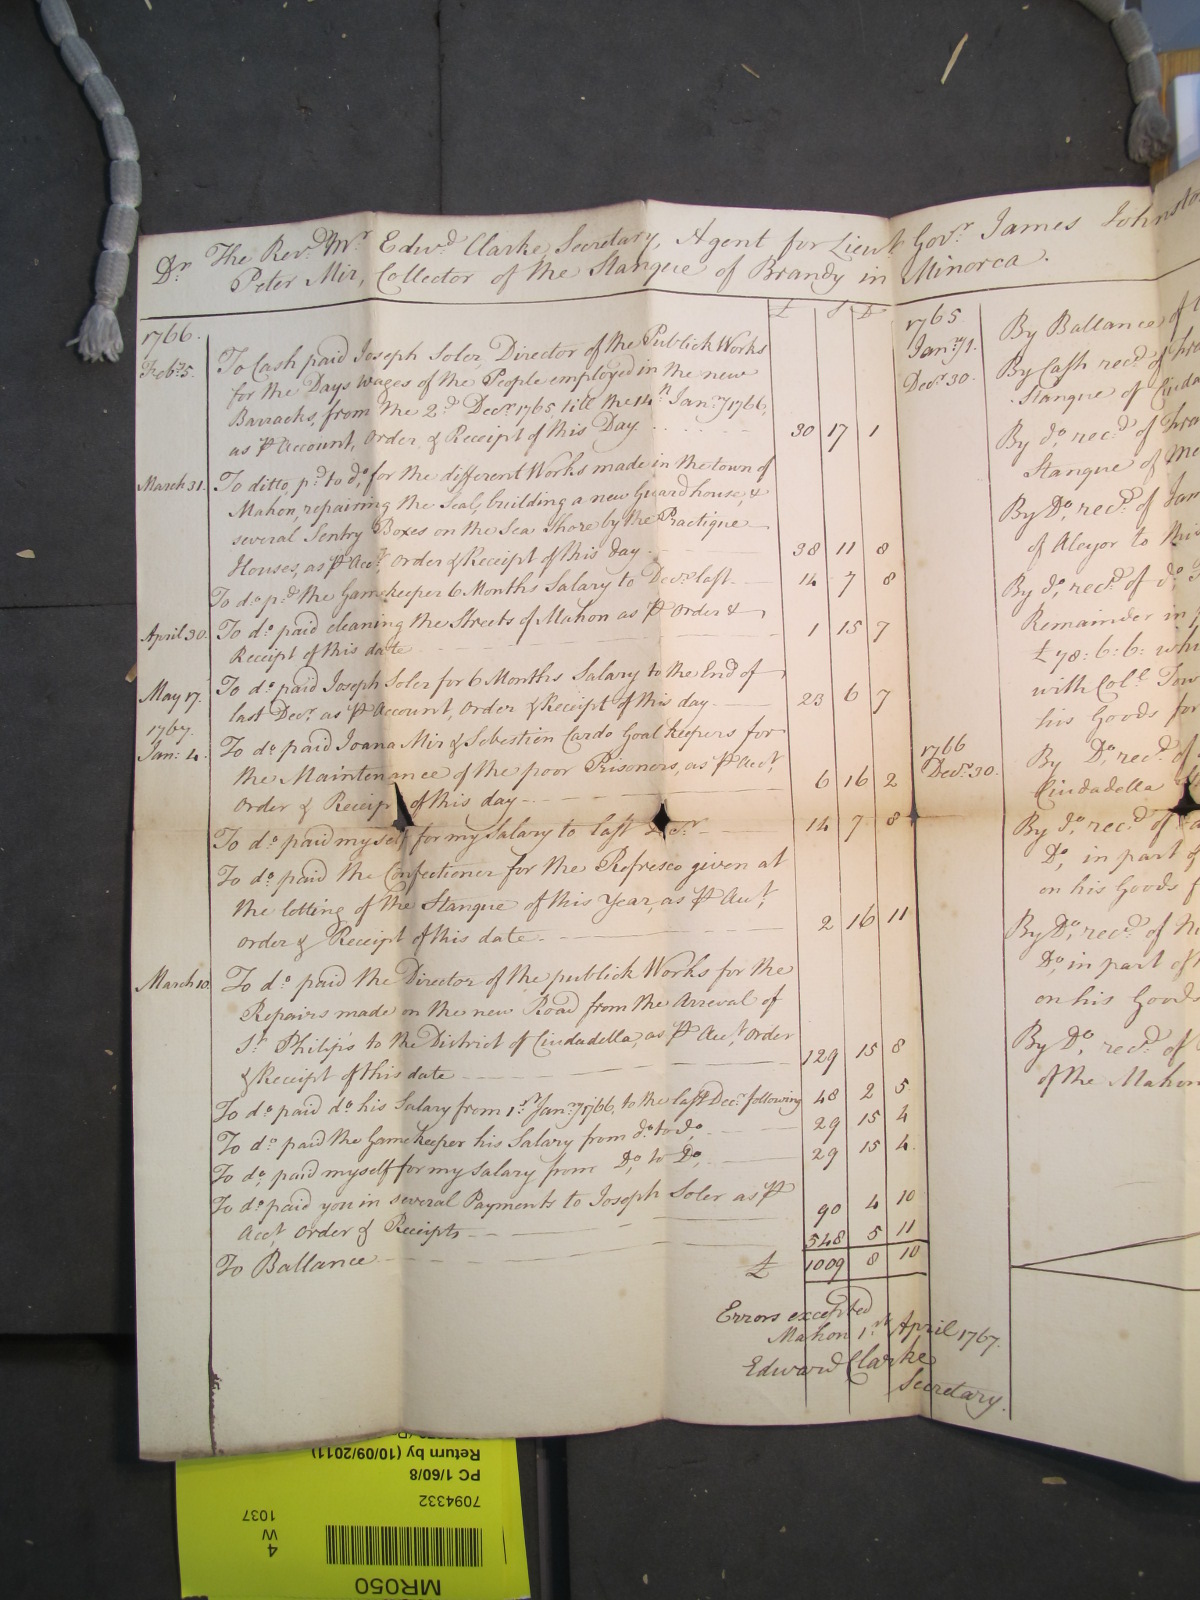 Dr. The Revd. Mr. Edwd. Clarke, Secretary, Agent for Lieut. Govr. James Johnston
Peter Mir, Collector of the Stanque of Brandy in Minorca.
£ S D
1766.
Feb. 5. To Cash paid Joseph Soler, Director of the Publick Works
for the Days wages of the People employed in the new
Barracks, from the 2d. Decr. 1765, till the 14th Janry 1766,
as ⅌ Account, Order, & Receipt of this Day 30 17 1
March 31. To ditto, pd. to do., for the different Works made in the town of
Mahon, repairing the Seal, building a new Guard house, &
several Sentry Boxes on the Sea Shore by the Practique
Houses, as ⅌ Acct. order & Receipt of this day 38 11 8
To do. pd. the Gamekeeper 6 Months Salary to Decr. last 14 7 8
April 30. To do. paid cleaning the Streets of Mahon as ⅌ Order &
Receipt of this date 1 15 7
May 17. To do. paid Joseph Soler for 6 Months Salary to the End of
last Decr. as ⅌ Account, Order & Receipt of this day 23 6 7
1767.
Jan: 4. To do. paid Joana Mir & Sebestien Cardo Goal keepers for
the Maintenance of the poor Prisoners, as ⅌ Acct.
Order & Receipt of this day 6 16 2
To do. paid myself for my Salary to last 14 7 8
To do. paid the Confectioner for the Refresco given at
the lotting of the Stanque of this Year, as ⅌ Acct.
order & Receipt of this date 2 16 11
March 10. To do. paid the Director of the publick Works for the
Repairs made on the new Road from the Arreval of
St. Philips to the District of Ciudadella, as ⅌ Acct. Order
& Receipt of this date 129 15 8
To do. paid do. his Salary from 1st. Janry 1766, to the last Decr. following 48 2 5
To do. paid the Gamekeeper his Salary from do. to do. 29 15 4
To do. paid myself for my Salary from Do. to Do. 29 15 4
To do. paid you in several Payments to Joseph Soler as ⅌
Acct. Order & Receipts 90 4 10
To Ballance 548 5 11
£ 1009 8 10
Errors excepted
Mahon 1st. April 1767.
Edward Clarke
Secretary.
1765
Janry 1. By Ballance of
Decr. 30. By Cash recd. of
Stanque of
By do. recd. of
Stanque of
By Do. recd. of
of Alayor to
By do. recd. of do.
Remainder in
£78:6:6: 
with Coll.
his Goods for
1766
Decr. 30. By Do. recd. of
Ciudadella
By do. recd. of
Do. in part of
on his Goods
By Do. recd. of
Do. in part of
on his Goods
By Do. recd. of
of the Mahon
Return by (10/09/2011)
PC 1/60/8
7094332
4
W
1037
MR050